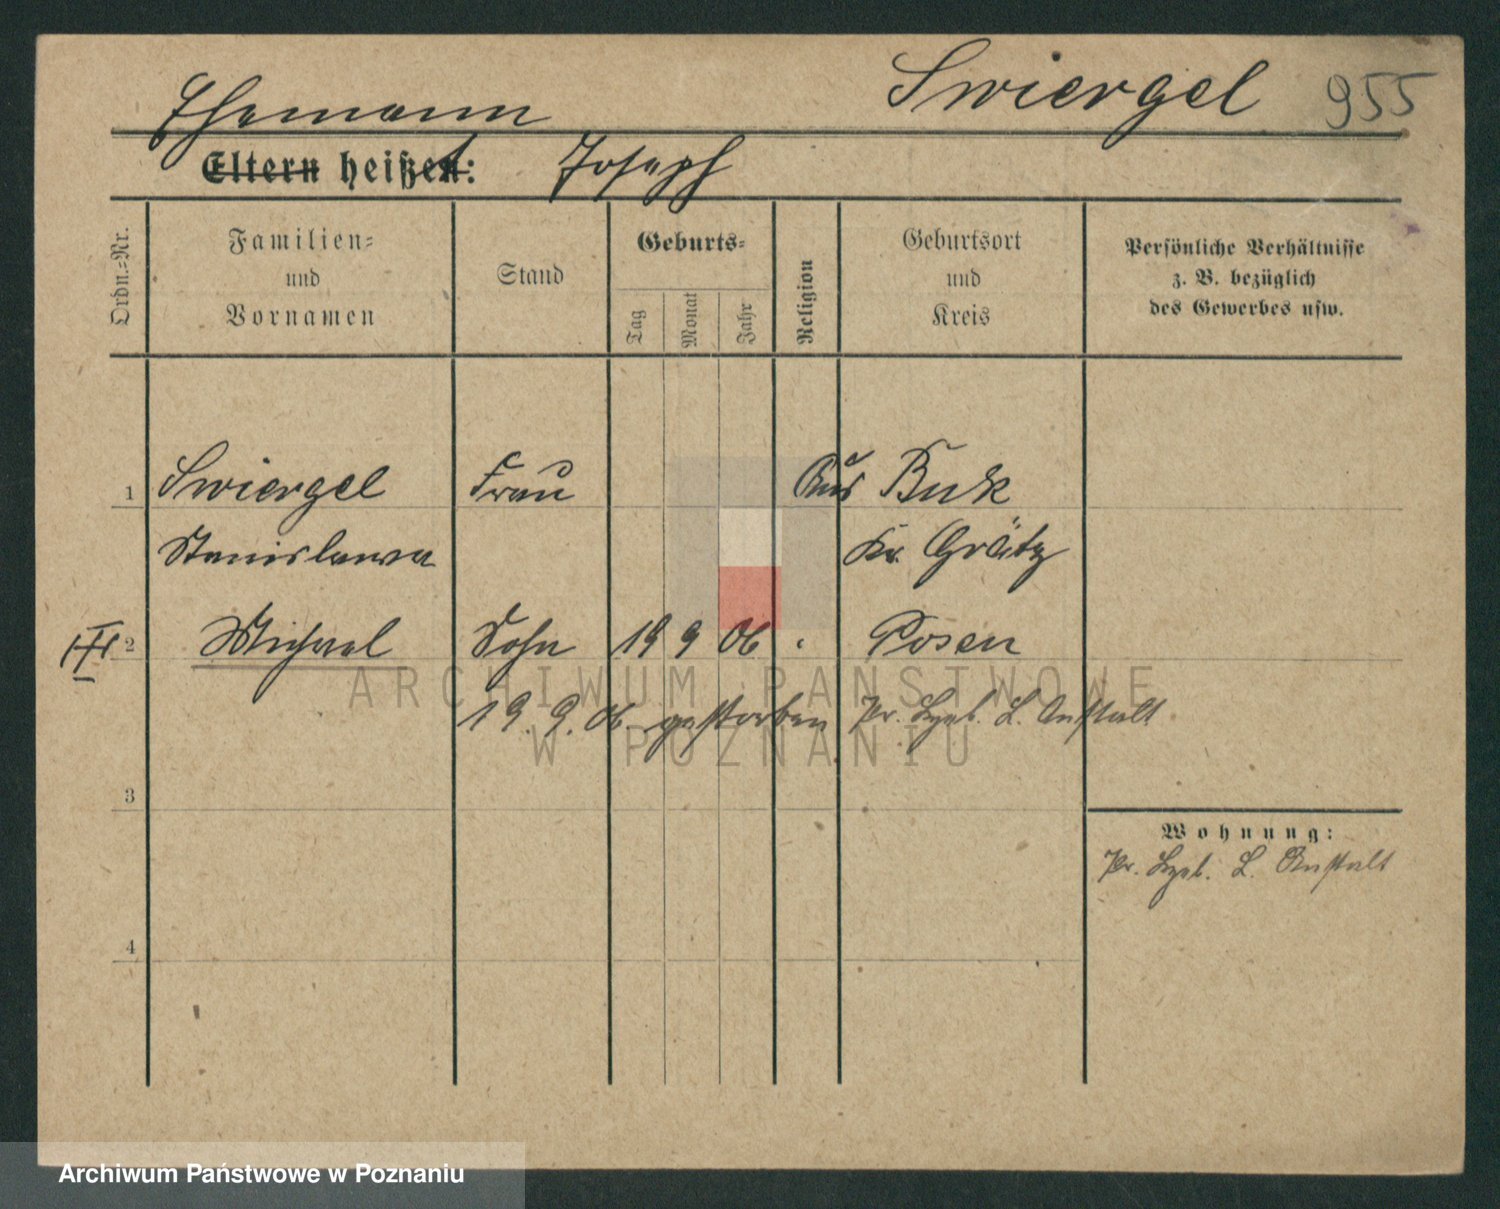 Swiergel 955
Ehemann
Eltern heißen: Joseph
Ordn.-Nr.
Familien-
und
Vornamen
Stand
Geburts-
Tag
Monat
Jahr
Religion
Geburtsort
und
Kreis
Persönliche Verhältnisse
z. B. bezüglich
des Gewerbes usw.
1 Swiergel Frau Aus Buk
Stanislawa Kr. Grätz
III 2 Michael Sohn 19 9 06 Posen
19. 9. 06 gestorben Pr. L. Anstalt
3
Wohnung:
Pr. L. Anstalt
4
ARCHIWUM PAŃSTWOWE
W POZNANIU
Archiwum Państwowe w Poznaniu